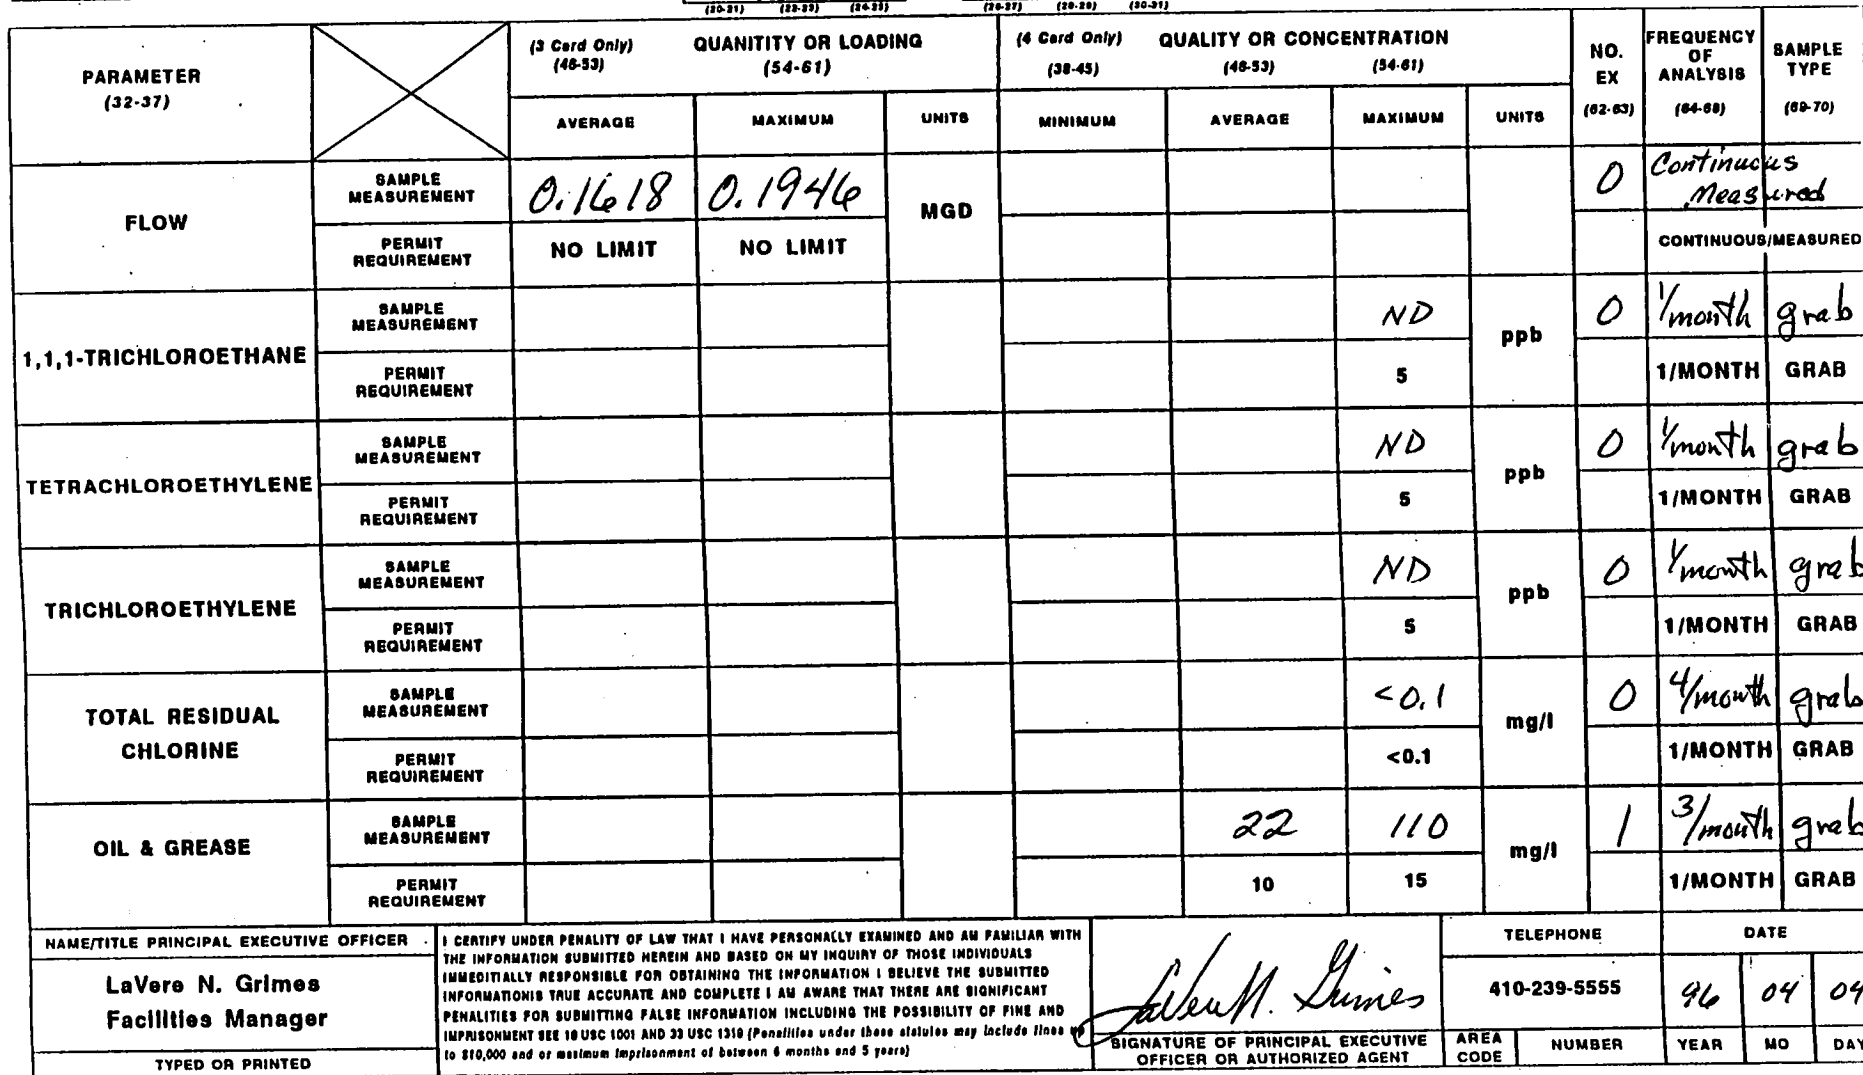 (20-21) (22-23) (24-25) (26-27) (28-29) (30-31)
PARAMETER
(32-37)
(3 Card Only)
(46-53)
QUANITITY OR LOADING
(54-61)
(4 Card Only)
(38-45)
QUALITY OR CONCENTRATION
(46-53) (54-61)
NO.
EX
(62-63)
FREQUENCY
OF
ANALYSIS
(64-68)
SAMPLE
TYPE
(69-70)
AVERAGE MAXIMUM UNITS MINIMUM AVERAGE MAXIMUM UNITS
FLOW
SAMPLE
MEASUREMENT
0.1618 0.1946 MGD 0 Continuous
Measured
PERMIT
REQUIREMENT
NO LIMIT NO LIMIT CONTINUOUS/MEASURED
1,1,1-TRICHLOROETHANE
SAMPLE
MEASUREMENT
ND ppb 0 1/month grab
PERMIT
REQUIREMENT
5 1/MONTH GRAB
TETRACHLOROETHYLENE
SAMPLE
MEASUREMENT
ND ppb 0 1/month grab
PERMIT
REQUIREMENT
5 1/MONTH GRAB
TRICHLOROETHYLENE
SAMPLE
MEASUREMENT
ND ppb 0 1/month grab
PERMIT
REQUIREMENT
5 1/MONTH GRAB
TOTAL RESIDUAL
CHLORINE
SAMPLE
MEASUREMENT
<0.1 mg/l 0 4/month grab
PERMIT
REQUIREMENT
<0.1 1/MONTH GRAB
OIL & GREASE
SAMPLE
MEASUREMENT
22 110 mg/l 1 3/month grab
PERMIT
REQUIREMENT
10 15 1/MONTH GRAB
NAME/TITLE PRINCIPAL EXECUTIVE OFFICER
LaVere N. Grimes
Facilities Manager
TYPED OR PRINTED
I CERTIFY UNDER PENALITY OF LAW THAT I HAVE PERSONALLY EXAMINED AND AM FAMILIAR WITH
THE INFORMATION SUBMITTED HEREIN AND BASED ON MY INQUIRY OF THOSE INDIVIDUALS
IMMEDITIALLY RESPONSIBLE FOR OBTAINING THE INFORMATION I BELIEVE THE SUBMITTED
INFORMATIONIS TRUE ACCURATE AND COMPLETE I AM AWARE THAT THERE ARE SIGNIFICANT
PENALITIES FOR SUBMITTING FALSE INFORMATION INCLUDING THE POSSIBILITY OF FINE AND
IMPRISONMENT SEE 18 USC 1001 AND 33 USC 1319 (Penalities under these statutes may include fines up
to $10,000 and or maximum imprisonment of between 6 months and 5 years)
LaVere N. Grimes
SIGNATURE OF PRINCIPAL EXECUTIVE
OFFICER OR AUTHORIZED AGENT
TELEPHONE
410-239-5555
AREA
CODE
NUMBER
DATE
96 04 04
YEAR MO DAY